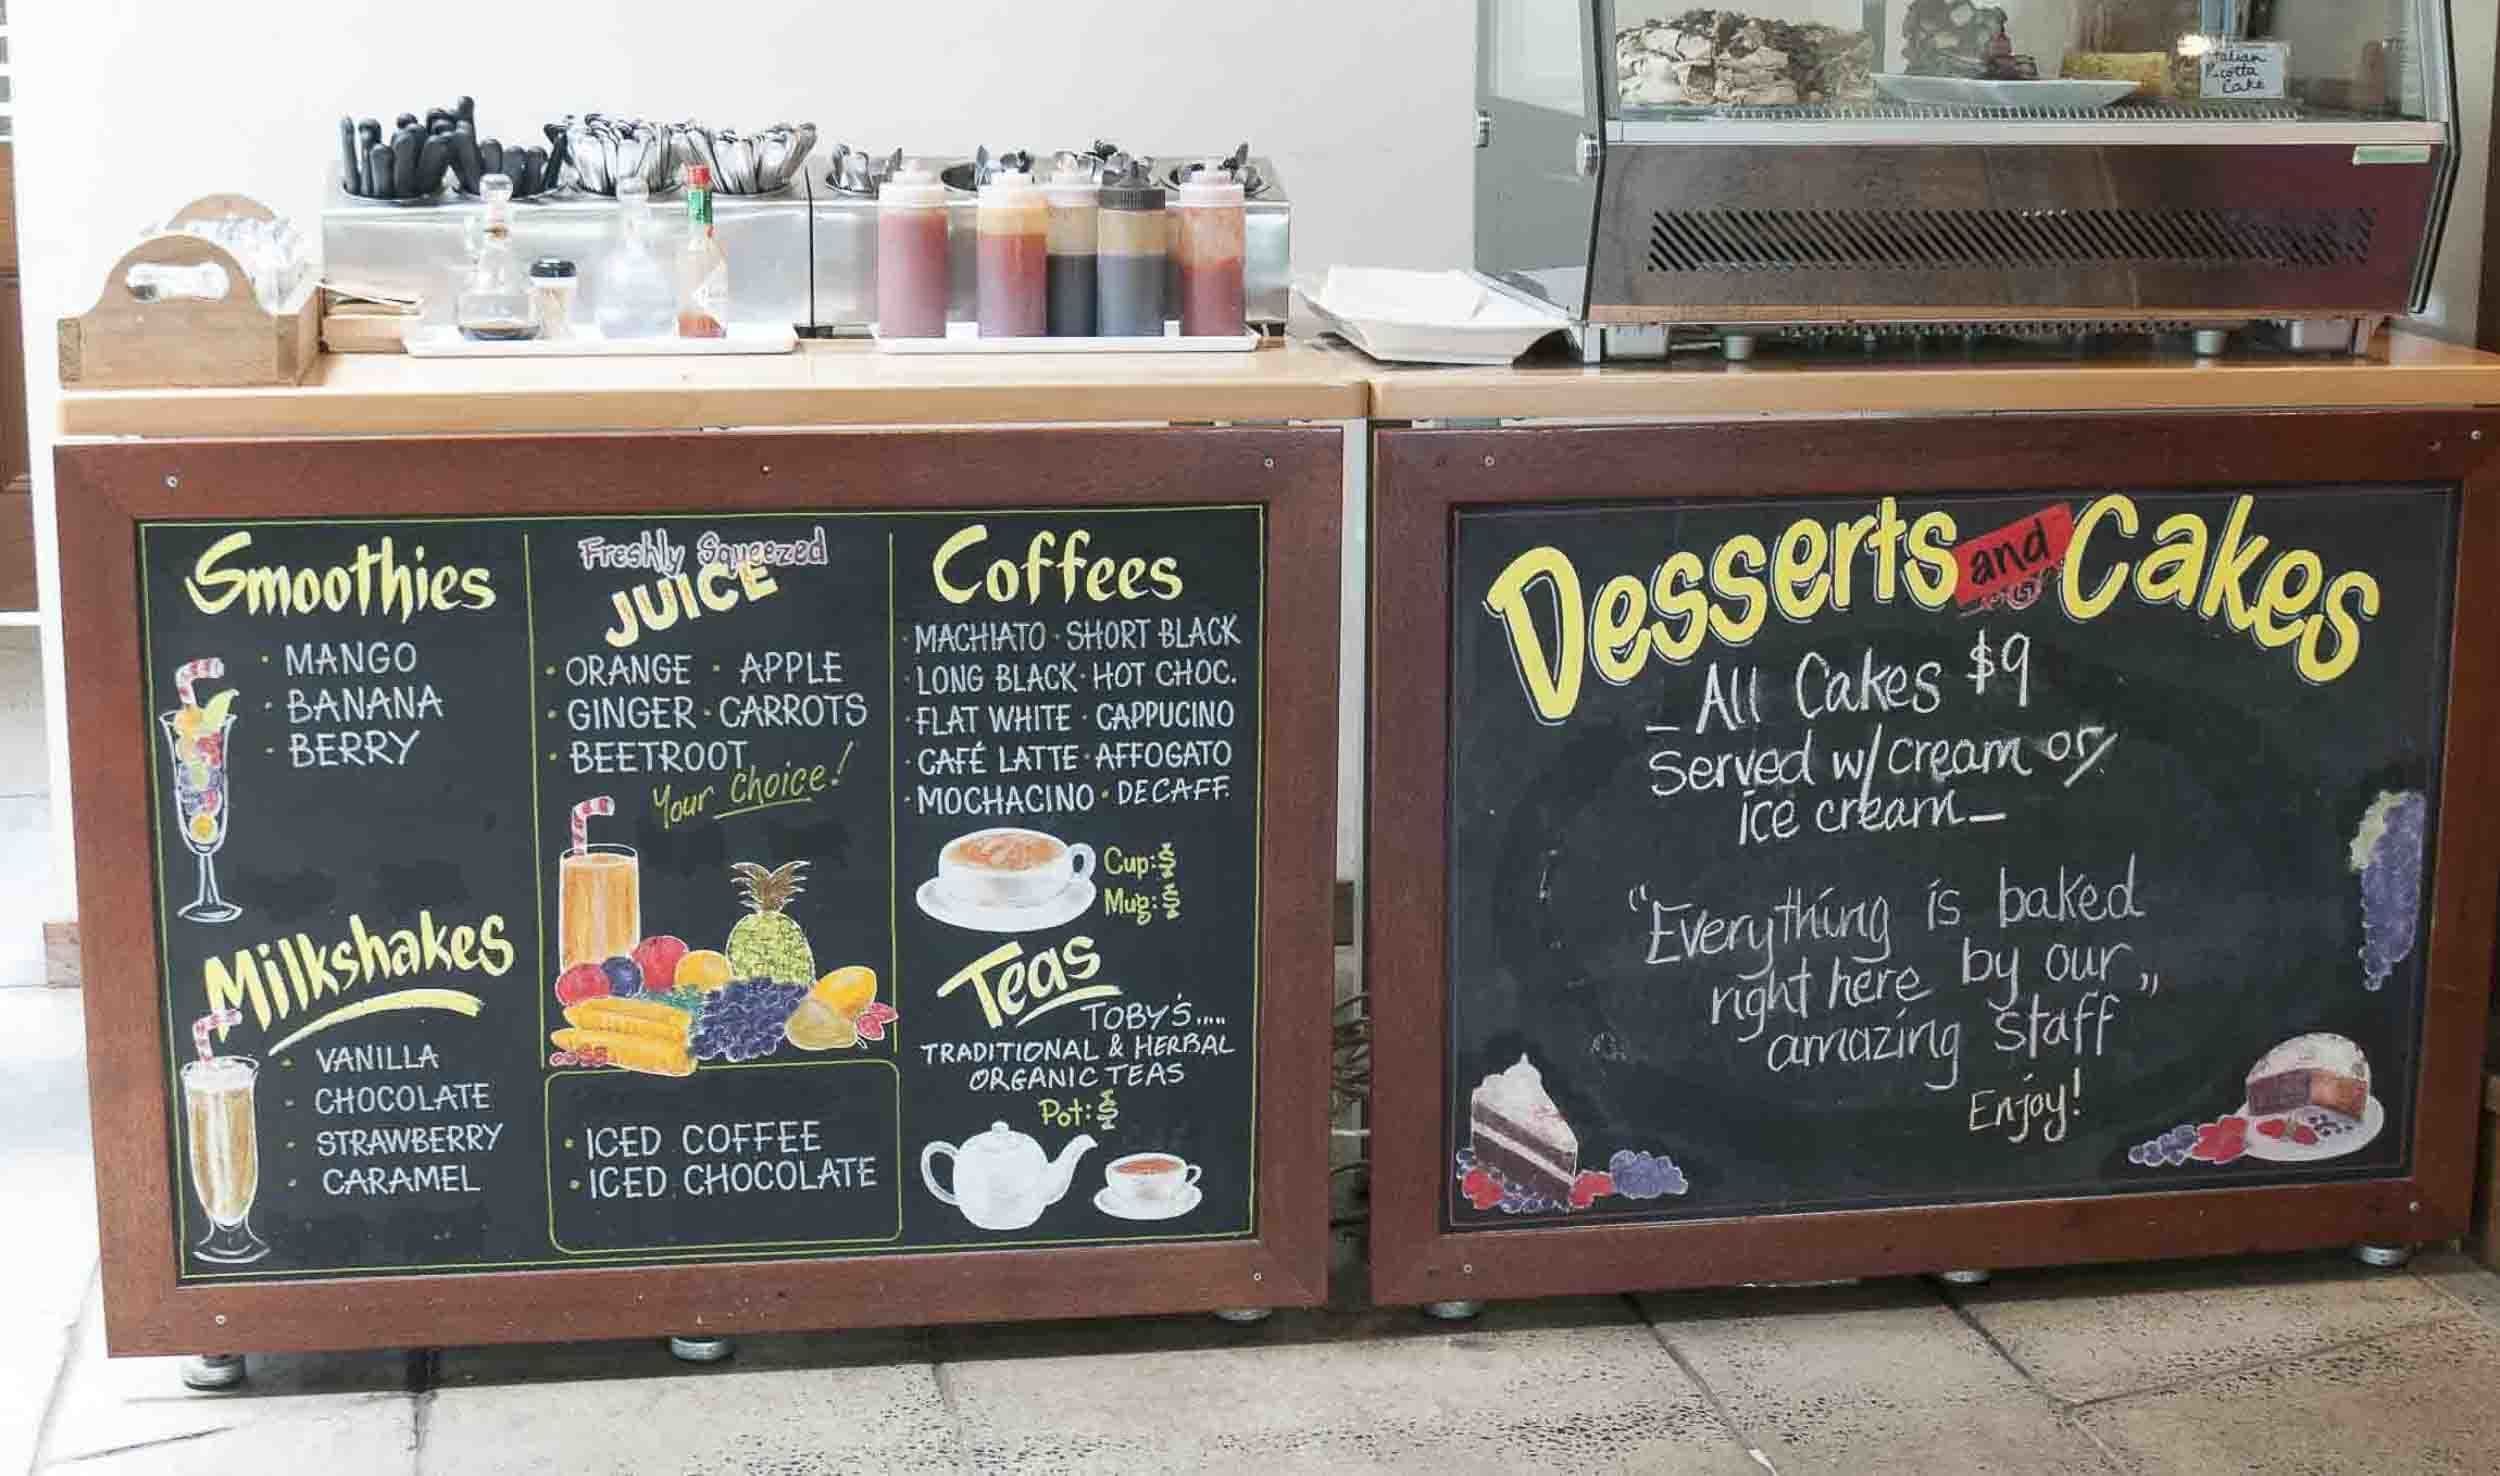 Italian
Ricotta
Cake
Smoothies
· MANGO
· BANANA
· BERRY
Milkshakes
· VANILLA
· CHOCOLATE
· STRAWBERRY
· CARAMEL
Freshly Squeezed
JUICE
· ORANGE · APPLE
· GINGER · CARROTS
· BEETROOT
Your Choice!
· ICED COFFEE
· ICED CHOCOLATE
Coffees
· MACHIATO · SHORT BLACK
· LONG BLACK · HOT CHOC.
· FLAT WHITE · CAPPUCINO
· CAFÉ LATTE · AFFOGATO
· MOCHACINO · DECAFF.
Cup: $
Mug: $
Teas
TOBY'S....
TRADITIONAL & HERBAL
ORGANIC TEAS
Pot: $
Desserts and Cakes
– All Cakes $9
Served w/ cream or
ice cream –
"Everything is baked
right here by our
amazing staff"
Enjoy!